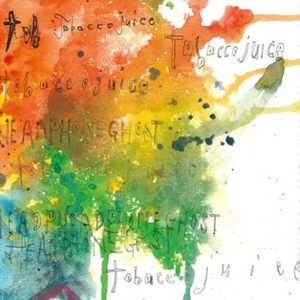 Tobacco juice
Tobacco juice
Tobacco juice
HEADPHONE GHOST
HEADPHONE GHOST
tobacco juice